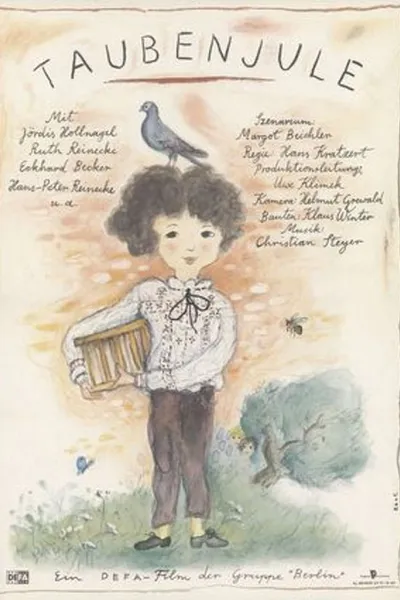 TAUBENJULE
Mit
Jördis Hollnagel
Ruth Reinecke
Eckhard Becker
Hans-Peter Reinecke
u.a.
Szenarium:
Margot Beichler
Regie: Hans Kratzert
Produktionsleitung:
Uwe Klimek
Kamera: Helmut Grewald
Bauten: Klaus Winter
Musik:
Christian Steyer
DEFA
Ein DEFA-Film der Gruppe "Berlin"